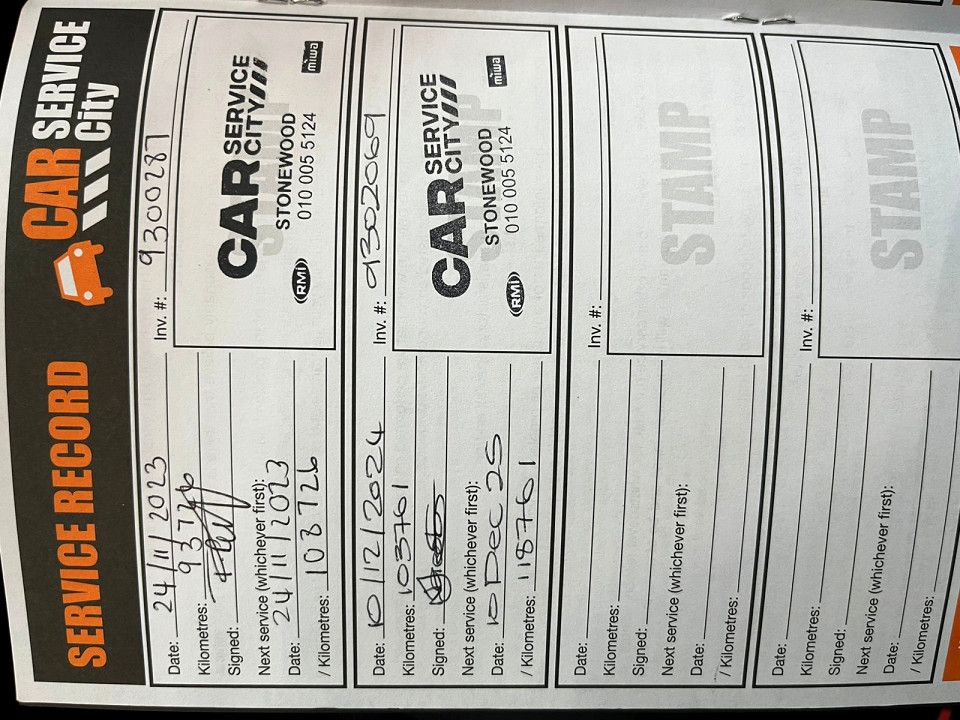 SERVICE RECORD
CAR SERVICE
City
Date: 24/11/2023 Inv. #: 9300287
Kilometres: 93726
Signed:
Next service (whichever first):
Date: 24/11/2023
/ Kilometres: 108726
CAR SERVICE
CITY
STONEWOOD
010 005 5124
RMI
miwa
Date: 10/12/2024 Inv. #: 9302069
Kilometres: 103761
Signed:
Next service (whichever first):
Date: 10 Dec 25
/ Kilometres: 118761
STAMP
CAR SERVICE
CITY
STONEWOOD
010 005 5124
RMI
miwa
Date: Inv. #:
Kilometres:
Signed:
Next service (whichever first):
Date:
/ Kilometres:
STAMP
Date: Inv. #:
Kilometres:
Signed:
Next service (whichever first):
Date:
/ Kilometres:
STAMP